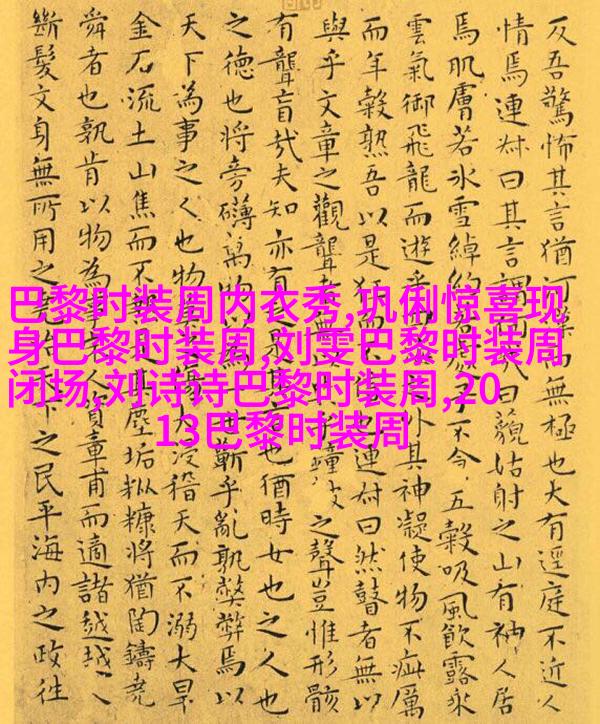 巴黎时装周内衣秀,巩俐惊喜现
身巴黎时装周,刘雯巴黎时装周
闭场,刘诗诗巴黎时装周,20
13巴黎时装周
反吾驚怖其言猶河漢無極也大有逕庭不近人
情焉連叔曰其言謂何曰藐姑射之山有神人居
焉肌膚若氷雪綽約若處子不食五穀吸風飲露乘
雲氣御飛龍而遊乎四外其神凝使物不疵厲
而年穀熟吾以是狂而不也連叔曰然瞽者無以
與乎文章之觀聾者無乎鐘鼓之聲豈惟形骸
有聾盲哉夫知亦有之是其也猶時女也之人也
之德也將旁礴萬物以世蘄乎亂孰弊弊焉以
天下為事之人也物莫之傷大浸稽天而不溺大旱
金石流土山焦而不熱是其塵垢粃糠將猶陶鑄堯
舜者也孰肯以物為事人資章甫而適諸越越人
斷髮文身無所用之堯治天下之民平海内之政往